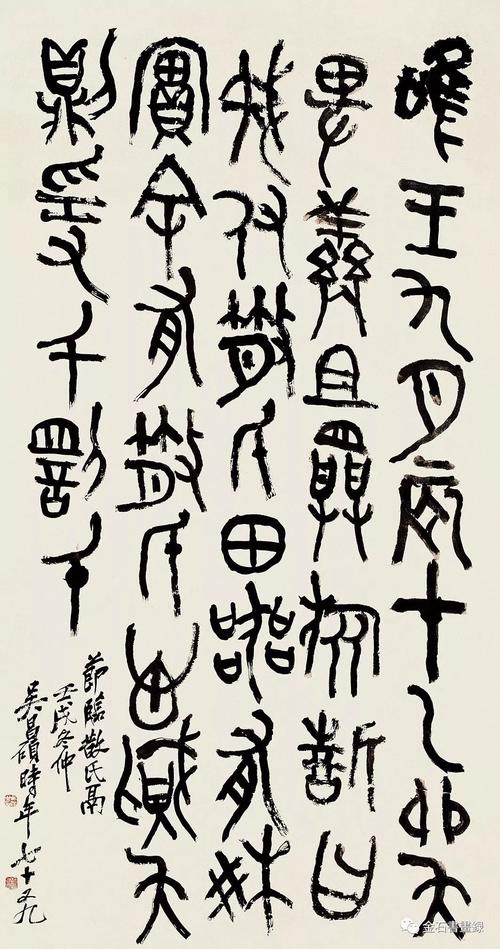 唯王九月辰才乙卯夨
卑義且𢍰旅誓曰
我付散氏田器有爽
實余有散氏心賊夨
則爰千罰千
節臨散氏鬲
壬戌冬仲
吳昌碩時年七十又九
金石書畫録